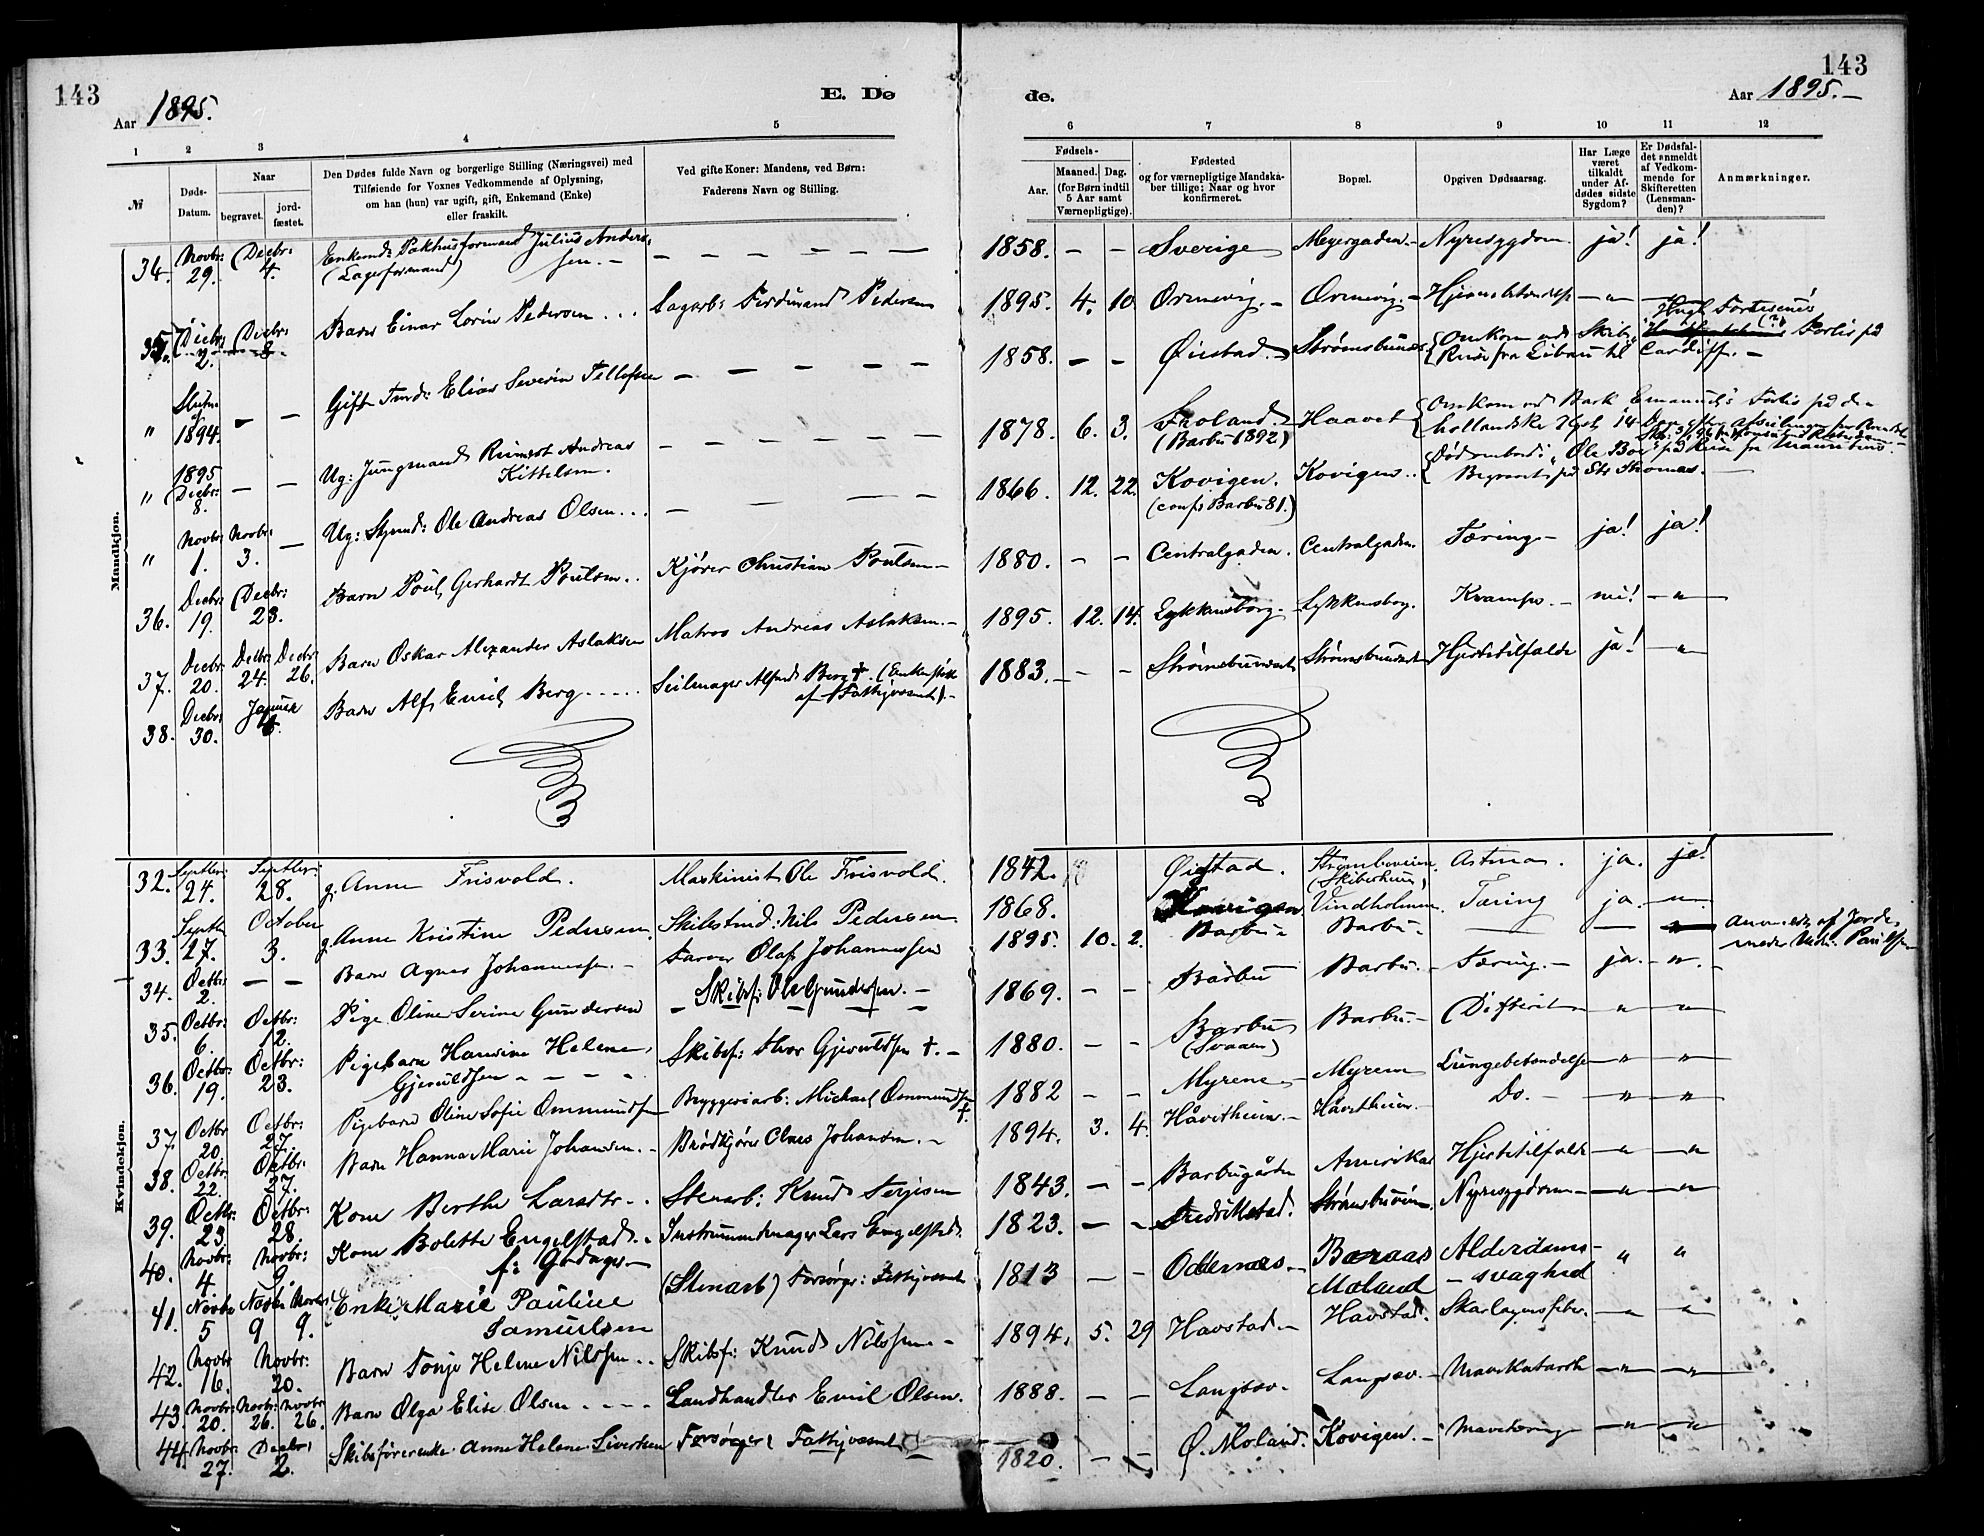 143
143
Aar 1895.
E. Dø
de.
Aar 1895.—
1 2 3 4 5
6 7 8 9 10 11 12
№
Døds-
Datum.
Naar
begravet.
jord-
fæstet.
Den Dødes fulde Navn og borgerlige Stilling (Næringsvei) med
Tilføiende for Voxnes Vedkommende af Oplysning,
om han (hun) var ugift, gift, Enkemand (Enke)
eller fraskilt.
Ved gifte Koner: Mandens, ved Børn:
Faderens Navn og Stilling.
Fødsels-
Aar.
Maaned. Dag.
(for Børn indtil
5 Aar samt
Værnepligtige).
Fødested
og for værnepligtige Mandska-
ber tillige: Naar og hvor
konfirmeret.
Bopæl.
Opgiven Dødsaarsag.
Har Læge
været
tilkaldt
under Af-
dødes sidste
Sygdom?
Er Dødsfal-
det anmeldt
af Vedkom-
mende for
Skifteretten
(Lensman-
den)?
Anmærkninger.
Mandkjøn.
34. Novbr: 29. Decbr: 4. Enkemd: Pakhusformand Julius Anders-
(Lagerformand) sen. — — — — — — 1858. — — Sverige Meyergaden. — Nyresygdom. ja! ja!
35. Decbr: 2. Decbr: 8. Barn Einar Lorin Pedersen ... Sagarb: Ferdinand Pedersen 1895. 4. 10. Ormevig. — Ormevig. —
" 1894. — — Gift Tmd: Elias Severin Tellefsen — — — — — 1858. — — Øiestad. Strømsbunes. Omkom med Skib
Reise fra Libau til Cardiff. — Forlis på
" 1895 Decbr: 8. — — Ug: Jungmand Andreas
Kittelsen. — — — — — 1878. 6. 3. Froland. (Barbu 1892) Haavet Omkom ved Bark "Emanuel"s Forlis på de
hollandske Kyst, 14
" Novbr: 1. Novbr: 3. — Ug: Styrmd: Ole Andreas Olsen ... — — — — 1866. 12. 22. Kovigen. (conf. Barbu 81.) Kovigen.. Død ombord i "Ole Bull" på Reise fra Mauritius.
Begravet på St. Thomas. —
36. Decbr: 19. Decbr: 23. Barn Poul Gerhardt Poulsen.. Kjører Christian Poulsen — 1880. — — Centralgaden. Centralgaden. Tæring — ja! ja!
37. Decbr: 20. Decbr: 24. Decbr: 26. Barn Oskar Alexander Aslaksen Matros Andreas Aslaksen. — 1895. 12. 14. Lykkensborg. — Lykkensborg. Krampe. — nei! — " —
38. Decbr: 30. Januar 4. Barn Alf Emil Berg ..... Seilmager Alfred Berg †. (Enken støtt.
af Fattigvæsenet). — 1883. — — Strømsbuneset Strømsbuneset Hjertetilfælde ja! — "
Kvindekjøn.
32. Septbr: 24. Septbr: 28. g. Anne Frisvold. Maskinist Ole Frisvold. 1842. Øiestad. Strømsbuveien (Skiberheien) Astma. ja. ja!
33. Septbr 27. October 3. g. Anne Kristine Pedersen. Skibstmd: Nils Pedersen 1868. Kovigen Vindholmen. Tæring ja. — " —
34. Octbr: 2. — — Barn Agnes Johannessen. — Farver Olaf Johannessen 1895. 10. 2. Barbu. Barbu. — — Anm. af Jorde-
moder Mdm. Paulsen
35. Octbr: 6. Octbr: 12. Pige Oline Serine Gundersen — Skibsf: Ole Gundersen. — 1869. — — Barbu Barbu. — Tæring. — ja. — " —
36. Octbr: 19. Octbr: 23. Pigebarn Hansine Helene
Gjeruldsen — — — — Skibsf: Thor Gjeruldsen †. — 1880. — — Barbu (Svaaen) Barbu. — Difterit — " — "
37. Octbr 20. Octbr: 27. Pigebarn Oline Sofie Ommundsen Bryggeriarb: Michael Ommundsen † 1882 — — Myrene. — Myrene Lungebetændelse — " — "
38. Octbr: 22. Octbr: 27. Barn Hanna Marie Johansen. — Brødkjører Claes Johansen. — 1894. 3. 4. Håvetheien. — Håvetheien. — Do. — — " — "
39. Octbr: 23. Octbr: 28. Kone Berthe Larsdtr .. Stenarb: Knud Terjesen 1843. — — Barbugården Amerika Hjertetilfælde — " — "
40. Novbr: 4 Novbr: 9. Kone Bolette Engelstad ..
f: Godager — Instrumentmager Lars Engelstad. 1823. — — Fredrikstad. Strømsbuveien. Nyresygdom — — " — "
41. Novbr: 5 Novbr 9 Novbr 9. Enke Marie Pauline
Samuelsen (Stenarb) Forsørges: Fattigvæsenet 1813 — — Oddernes. — Baraas
Moland Alderdoms-
— svaghed " "
42. Novbr 16. Novbr: 20. Barn Tonje Helene Nilssen .. Skibsf: Knud Nilssen — 1894. 5. 29 Havstad — Havstad. Skarlagensfeber. — " — "
43. Novbr: 20. Novbr: 26. Novbr 26. Barn Olga Elise Olsen .... Landhandler Emil Olsen. 1888. — — Langsæv. Langsæv. — Mavekatarrh — " — "
44. Novbr: 27. Decbr: 2. Skibsførerenke Anne Helene Sivertsen Forsørges: Fattigvæsenet 1820. — — Ø. Moland. Kovigen. — Mavetæring — " — "